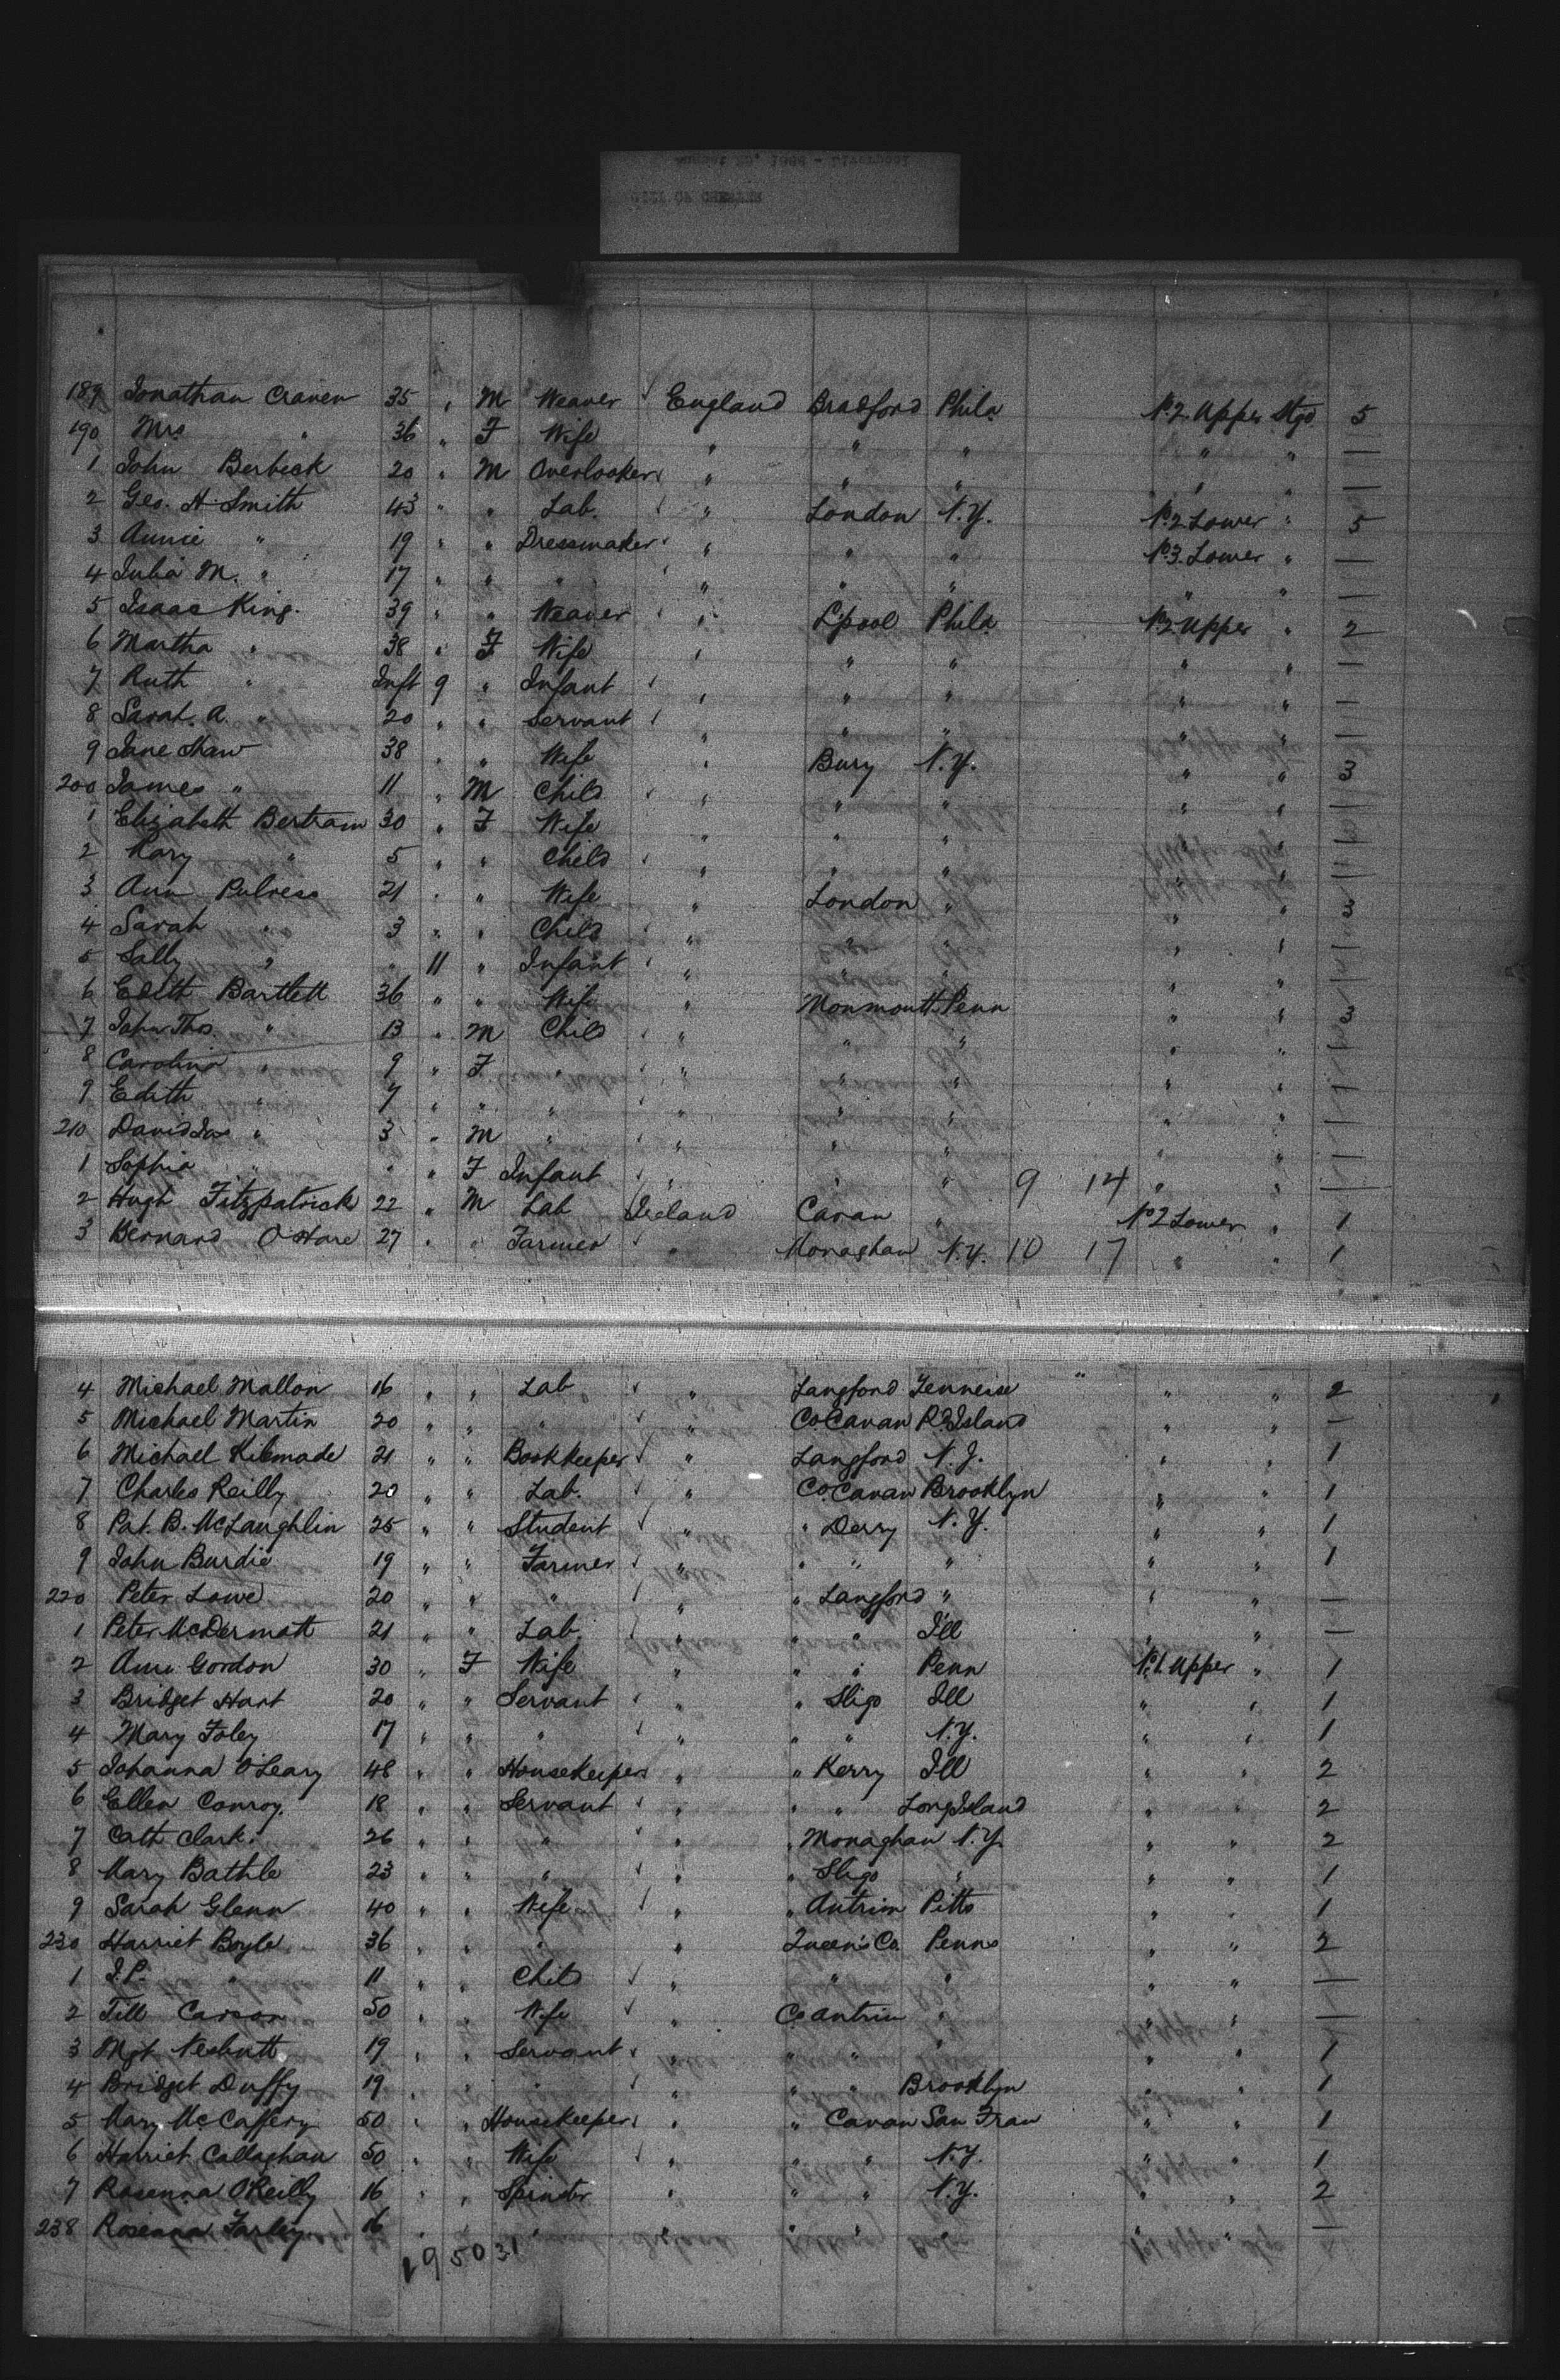 189 Jonathan Craven 35 " M Weaver England Bradford Phila No.2 Upper Stgo 5
190 Mrs " 36 " F Wife " " " " " —
1 John Berbeck 20 " M Overlooker " " " " " —
2 Geo. H. Smith 43 " " Lab. " London N.Y. No.2 Lower " 5
3 Annie " 19 " " Dressmaker " " " No.3. Lower " —
4 Julia M. " 17 " " " " " " " " —
5 Isaac King. 39 " " Weaver " L'pool Phila No.2 Upper " 2
6 Martha " 38 " F Wife " " " " " —
7 Ruth " Inft 9 " Infant " " " " " —
8 Sarah. A. " 20 " " Servant " " " " " —
9 Jane Shaw 38 " " Wife " Bury N.Y. " " 3
200 James " 11 " M Child " " " " " —
1 Elizabeth Bertram 30 " F Wife " " " " "
2 Mary " 5 " " Child " " " " "
3 Ann Pulvess 21 " " Wife " London " " " 3
4 Sarah " 3 " " Child " " " " " —
5 Sally " " 11 " Infant " " " " " —
6 Edith Bartlett 36 " " Wife " Monmouth Penn " " 3
7 John Thos " 13 " M Child " " " " " —
8 Caroline " 9 " F " " " " " " —
9 Edith " 7 " " " " " " " " —
210 David Jas " 3 " M " " " " " " —
1 Sophia " " " F Infant " " " 9 14 " " —
2 Hugh Fitzpatrick 22 " M Lab Ireland Cavan " No2 Lower " 1
3 Bernard O'Hare 27 " " Farmer " Monaghan N.Y. 10 17 " " 1
4 Michael Mallon 16 " " Lab " Langford Tenneise " " " 2
5 Michael Martin 20 " " " " Co. Cavan R.Island " " —
6 Michael Kilmade 21 " " Bookkeeper " Langford N.J. " " 1
7 Charles Reilly 20 " " Lab. " Co. Cavan Brooklyn " " 1
8 Pat. B. McLaughlin 25 " " Student " " Derry N.Y. " " 1
9 John Burdie 19 " " Farmer " " " " " " 1
220 Peter Lowe 20 " " " " " Langford " " " —
1 Peter McDermott 21 " " Lab. " " " Ill " " —
2 Ann Gordon 30 " F Wife " " " Penn No.1. Upper " 1
3 Bridget Hart 20 " " Servant " " Sligo Ill " " 1
4 Mary Foley 17 " " " " " " N.Y. " " 1
5 Johanna O'Leary 48 " " Housekeeper " " Kerry Ill " " 2
6 Ellen Conroy. 18 " " Servant " " " Long Island " " 2
7 Cath Clark. 26 " " " " " Monaghan N.Y. " " 2
8 Mary Bathle 23 " " " " " Sligo " " " 1
9 Sarah Glenn 40 " " Wife " " Antrim Pitts " " 1
230 Harriet Boyle 36 " " " " Queen's Co. Penna " " 2
1 J.P. " 11 " " Child " " " " " —
2 Till Carson 50 " " Wife " Co Antrim " " " —
3 Mgt Nesbutt 19 " " Servant " " " " " " 1
4 Bridget Duffy 19 " " " " " " Brooklyn " " 1
5 Mary McCaffery 50 " " Housekeeper " " Cavan San Fran " " 1
6 Harriet Callaghan 50 " " Wife " " " N.Y. " " 1
7 Rosanna O'Reilly 16 " " Spinster " " " N.Y. " " 2
238 Roseana Farley 16 " " " " " " " " " —
195031